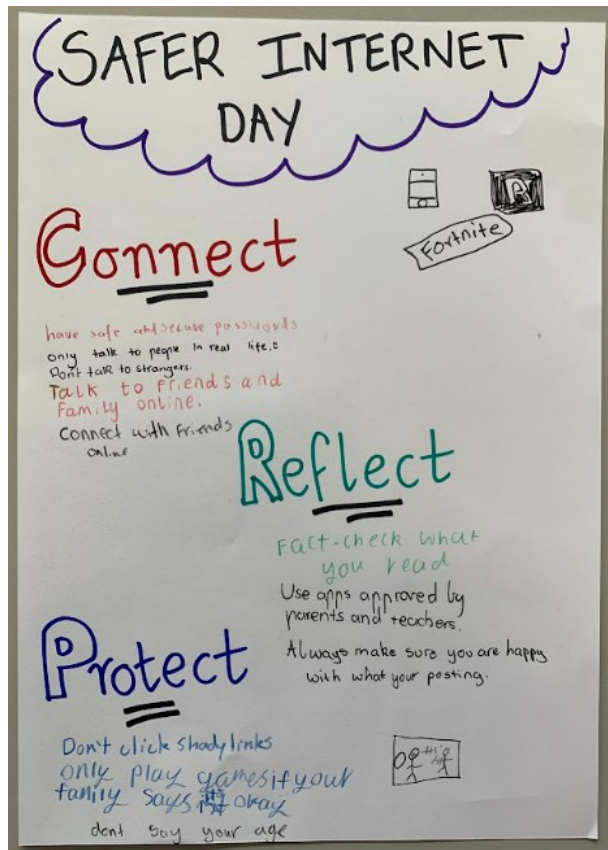 SAFER INTERNET
DAY
R
Fortnite
Connect
have safe and secure passwords
only talk to people in real life.
Don't talk to strangers.
Talk to friends and
family online.
Connect with friends
online
Reflect
Fact-check what
you read
Use apps approved by
parents and teachers.
Always make sure you are happy
with what your posting.
Protect
Don't click shady links
only play games if your
family says its okay
Hi
dont say your age